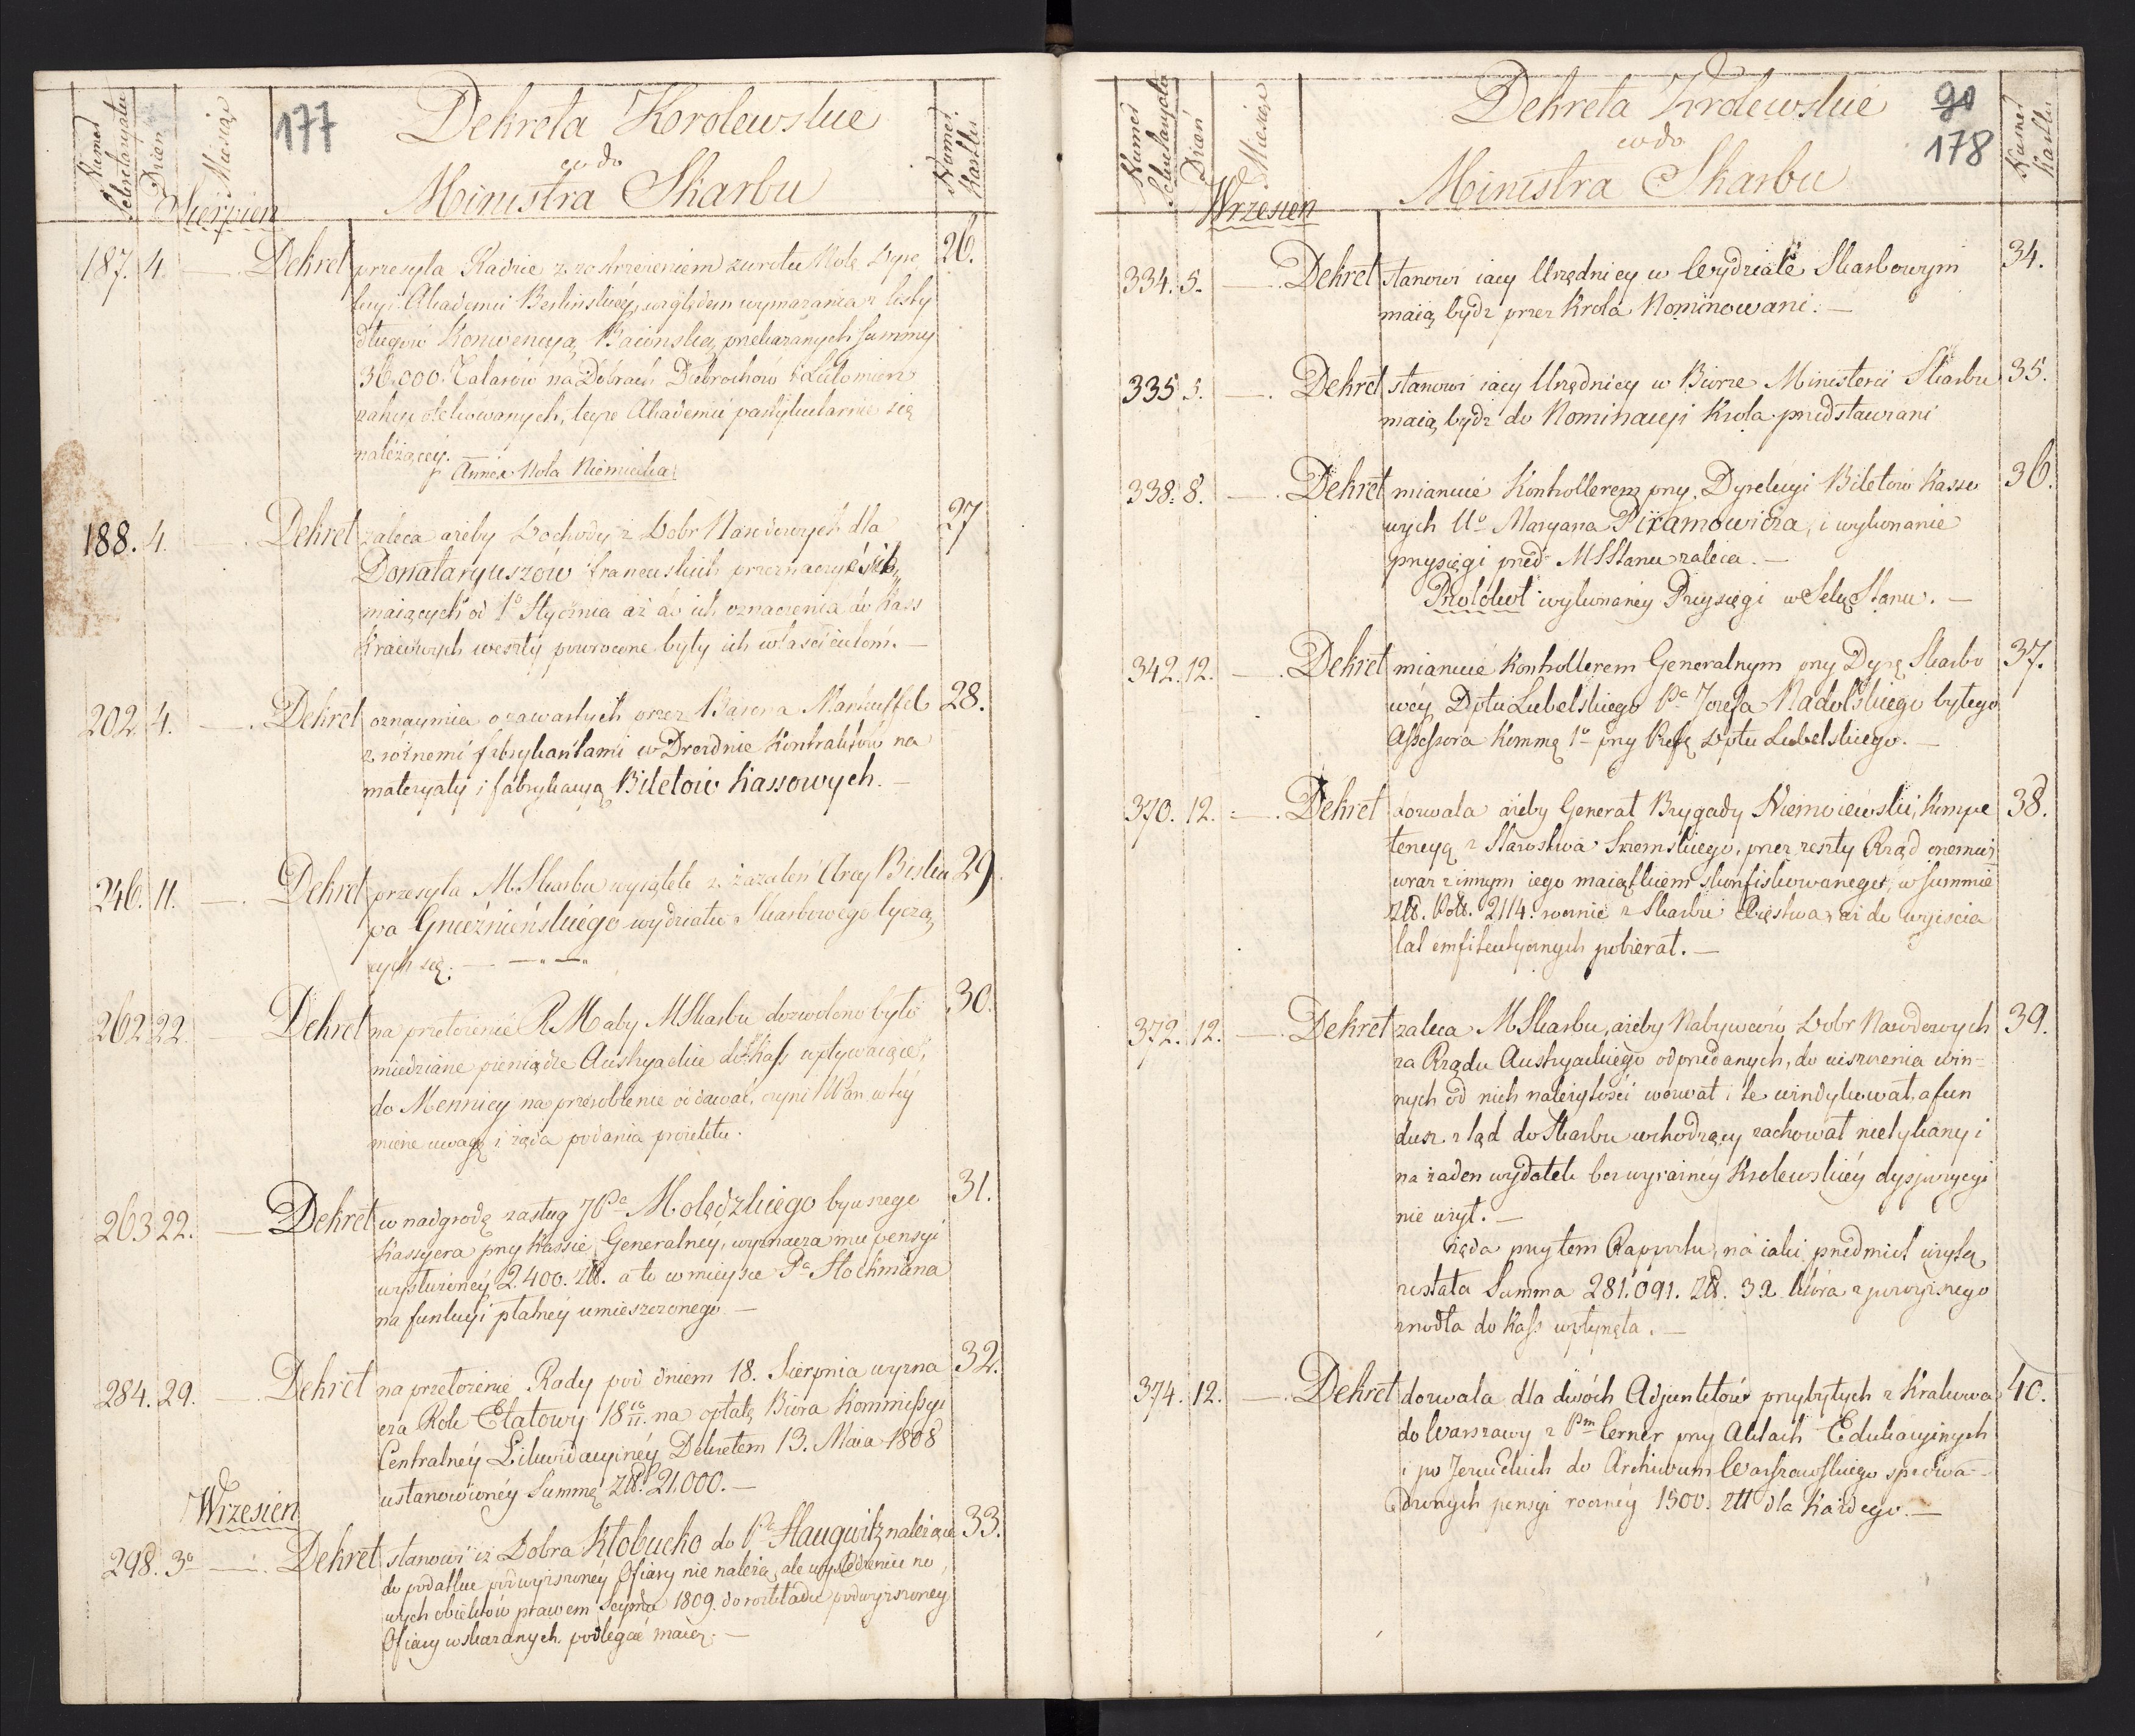 Numer Sekretaryatu
Dzień
Miesiąc
177
Dekreta Królewskie
co do
Ministra Skarbu
Numer Kartki
Sierpień
187. 4. — Dekret przesyła Radzie z zastrzeżeniem zwrotu Notę Dyre 26.
kcyi Akademii Berlińskiéy, względem wymazania z listy
długów Konwencyą Baiońską przekazanych Summy
36,000 Talarów na Dobrach Dobrochów i Lutomiers
zahypotekowanych, teyże Akademii partykularnie się
należącéy.
Annex Nota Niemiecka
188. 4. — Dekret zaleca ażeby Dochody z Dobr Narodowych dla 27
Donataryuszów francuskich przeznaczyć się
maiących od 1o Stycznia aż do ich oznaczenia do Kass
Kraiowych weszły powrocone były ich właścicielom. —
202 4. — Dekret oznaymia o zawartych przez Barona Manteuffel 28.
z rożnemi fabrykantami w Dreznie Kontraktów na
materyały i fabrykacyą Biletow Kassowych. —
246. 11. — Dekret przesyła M. Skarbu wyiątek z zażaleń Arcy Bisku 29.
pa Gnieźnieńskiégo wydziału Skarbowego tyczą
cych się. — — " — "
262 22. — Dekret na przełożenie RM aby M Skarbu dozwolono było 30.
miedziane pieniądze Austryackie do Kass wpływaiące,
do Mennicy na przerobienie oddawać, czyni w téy
mierze uwagę i żąda podania proiektu.
263 22. — Dekret w nadgrodę zasług JPa Molędzkiego bywszego 31.
Kassyera przy Kassie Generalnéy, wyznacza mu pensyi
wysłużonéy 2.400. zł. a to w mieysce Pa Stockmana
na funkcyi płatnéy umieszczonego. —
284. 29. — Dekret na przełożenie Rady pod dniem 18. Sierpnia wyzna 32.
cza Rok Etatowy 18 10/11. na opłatę Biora Kommissyi
Centralnéy Likwidacyinéy Dekretem 13. Maia 1808
ustanowionéy Summę zł. 21.000. —
Wrzesień
298. 3o — Dekret stanowi iż Dobra Kłobucko do Pa Haugwitz należące 33.
do podatku podwyiszoney Ofiary nie należą, ale wyśledzeniu no
wych obiektów prawem Seymu 1809. do rozkładu podwyiszoney
Ofiary wskazanych podlegać maią. —
Numer Sekretaryatu
Dzień
Miesiąc
Dekreta Królewskie
co do
Ministra Skarbu
90
178
Numer Kartki
Wrzesień
334. 5. — Dekret stanowi iacy Urzędnicy w Wydziale Skarbowym 34.
maią bydź przez Krola Nominowani. —
335 5. — Dekret stanowi iacy Urzędnicy w Biurze Ministerii Skarbu 35.
maią bydź do Nominacyi Krola przedstawiani
338. 8. — Dekret mianuie Kontrollerem przy Dyrekcyi Biletów Kasso 36.
wych Uo Maryana Piramowicza, i wykonanie
przysięgi przed MSStanu zaleca. —
Protokół wykonaney Przysięgi w Sekr. Stanu. —
342. 12. — Dekret mianuie Kontrollerem Generalnym przy Dyrę Skarbo 37.
wéy Dptu Lubelskiego Pa Jozefa Nadolskiego byłego
Assessora Kommę 1o przy Prefę Dptu Lubelskiego. —
370. 12. — Dekret dozwala ażeby Generał Brygady Niemoiewski, Kompe 38.
tencyą z Starostwa Sremskiego, przez zeszły Rząd onemuż
wraz z innym iego maiątkiem skonfiskowanego, w summie
Złł. Poll. 2114. rocznie z Skarbu Xięstwa, aż do wyiścia
lat emfiteutycznych pobierał. —
372. 12. — Dekret zaleca M Skarbu, ażeby Nabywców Dobr Narodowych 39.
za Rządu Austryackiégo odprzedanych, do uiszczenia win-
nych od nich należytości wezwał i te windykował, a fun
dusz z tąd do Skarbu wchodzący zachował nietykany i
na żaden wydatek bez wyraźnéy Krolewskiéy dyspozycyi
nie użył. —
Żąda przytem Rapportu, na iaki przedmiot użytą
została Summa 281.091. zł. 32. która z powyższego
źrzodła do Kass wpłynęła. —
374. 12. — Dekret dozwala dla dwóch Adjunktów przybyłych z Krakowa 40.
do Warszawy z Pm Cerner przy Aktach Edukacyinych
i po Jezuickich do Archiwum Warszawskiego sprowa-
dzonych pensyi roczney 1500. złł dla każdego. —